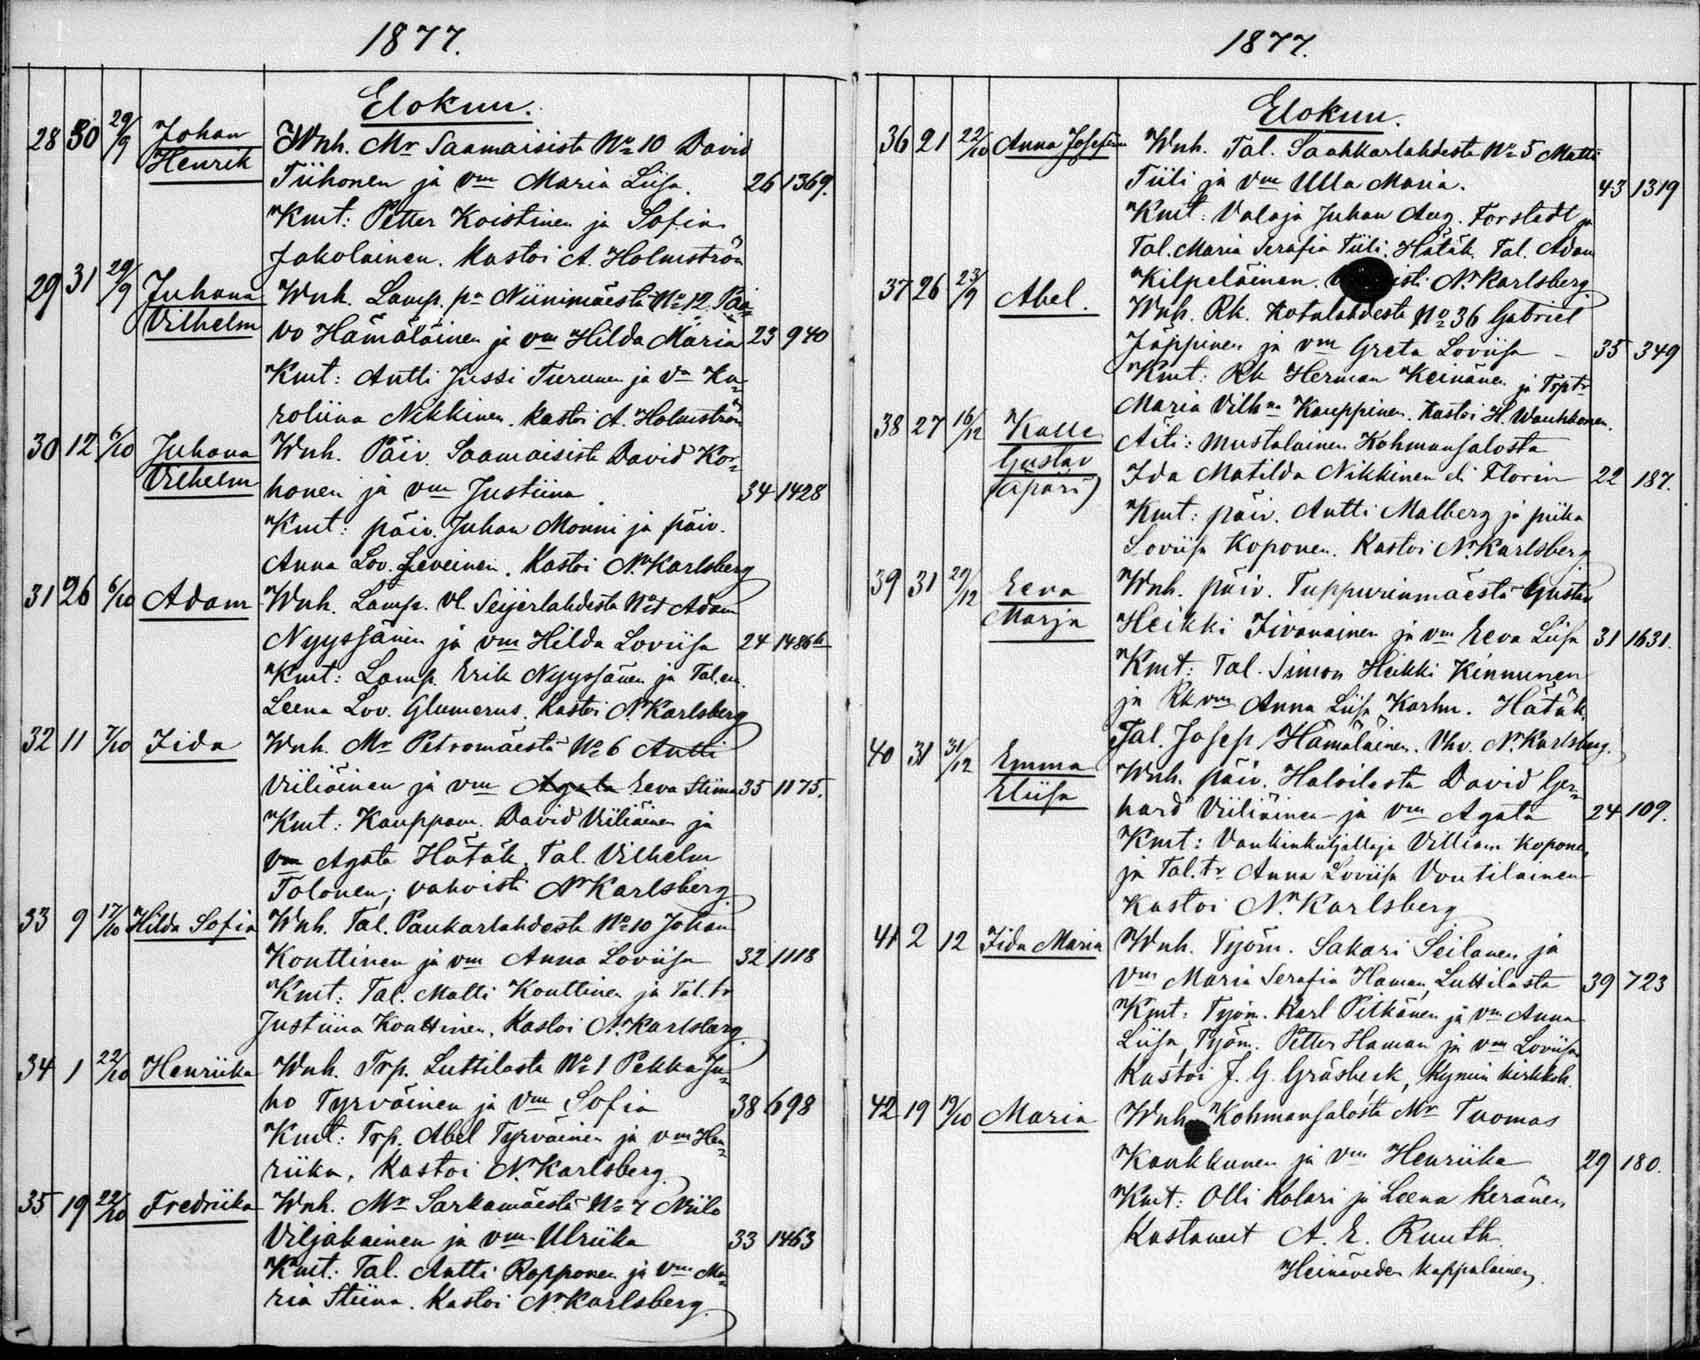 1877.
Elokuu.
28 30 29/9 Johan Wnh. Mr Saamaisista No 10 David
Henrik Tiihonen ja vm Maria Liisa. 26 1369.
Kmt: Petter Koistinen ja Sofia
Jakolainen. Kastoi A. Holmström
29 31 29/9 Juhana Wnh. Lamp. pn Niinimäestä No 12. Pai-
Vilhelm vo Hämäläinen ja vm Hilda Maria 23 940
Kmt: Antti Jussi Turunen ja vm Ka-
roliina Nikkinen. Kastoi A. Holmström
30 12 6/10 Juhana Wnh. Päiv. Saamaisista David Kor-
Vilhelm honen ja vm Justiina. 34 1428
Kmt: päiv. Juhan Monni ja päiv.
Anna Lov. Leveinen. Kastoi N. Karlsberg
31 26 6/10 Adam Wnh. Lamp. vl. Seijerlahdesta No 1 Adam
Nyyssänen ja vm Hilda Loviisa 24 1486b
Kmt: Lamp. Erik Nyyssänen ja Tal.en.
Leena Lov. Glumerus. Kastoi N. Karlsberg
32 11 7/10 Iida Wnh. Mr Petromäestä No 6 Antti
Väiliäinen ja vm Agata Eeva Stiina 35 1175.
Kmt: Kauppam. David Väiliäinen ja
vm Agata Hätäk. Tal. Vilhelm
Tolonen; vahvisti N. Karlsberg
33 9 17/10 Hilda Sofia Wnh. Tal. Paukarlahdesta No 10 Johan
Konttinen ja vm Anna Loviisa 32 1118
Kmt: Tal. Matti Konttinen ja Tal. tr
Justiina Konttinen. Kastoi N. Karlsberg
34 1 22/10 Henriika Wnh. Trp. Luttilasta No 1 Pekka Ju-
ho Tyrväinen ja vm Sofia 38 698
Kmt: Trp. Abel Tyrväinen ja vm Hen-
riika. Kastoi N. Karlsberg.
35 19 22/10 Fredriika Wnh. Mr Sarkamäestä No 7 Niilo
Viljakainen ja vm Ulriika 33 1463
Kmt: Tal. Antti Ropponen ja vm Ma-
ria Stiina. Kastoi N. Karlsberg.
1877.
Elokuu.
36 21 22/10 Anna Josefina Wnh. Tal. Saahkarlahdesta No 5 Matti
Tiili ja vm Ulla Maria. 43 1319
Kmt: Valaja Juhan Aug. Forstedt ja
Tal. Maria Serafia Tiili. Hätäk. Tal. Adam
Kilpeläinen. N. Karlsberg
37 26 23/9 Abel. Wnh. Rk. Kotalahdesta No 36 Gabriel
Jäppinen ja vm Greta Loviisa – 35 349
Kmt: Rk Herman Keinänen ja Trp tr
Maria Vilh:na Kauppinen. Kastoi H. Wauhkonen.
38 27 16/12 Kalle Äiti: Mustalainen Kohmansalosta
Gustav Ida Matilda Nikkinen eli Florin 22 187.
(äpärä) Kmt: päiv. Antti Malberg ja piika
Loviisa Koponen. Kastoi N. Karlsberg
39 31 29/12 Eeva Wnh. päiv. Tuppurinmäestä Gustav
Marja Heikki Iivanainen ja vm Eeva Liisa 31 1631.
Kmt: Tal. Simon Heikki Kinnunen
ja Rk vm Anna Liisa Karhu. Hätäk.
Tal. Josep Hämäläinen. Vhv. N. Karlsberg.
40 31 31/12 Emma Wnh. päiv. Haloilasta David Ger-
Eliisa hard Väiliäinen ja vm Agata 24 109.
Kmt: Vankinkuljettaja Villiam Koponen
ja Tal. tr Anna Loviisa Voutilainen
Kastoi N. Karlsberg
41 2 12 Iida Maria Wnh. Työm. Sakari Seilonen ja
vm Maria Serafia Haman, Luttilasta 39 723
Kmt: Työm. Karl Pitkänen ja vm Anna
Liisa, Työm. Petter Haman ja vm Loviisa
Kastoi J. G. Gråsbeck, Kymin kirkkoh.
42 19 19/10 Maria Wnh. Kohmansalosta Mr Tuomas
Kankkunen ja vm Henriika 29 180.
Kmt: Olli Kalari ja Leena Keränen.
Kastanut A. E. Ruuth.
Heinäveden kappalainen.